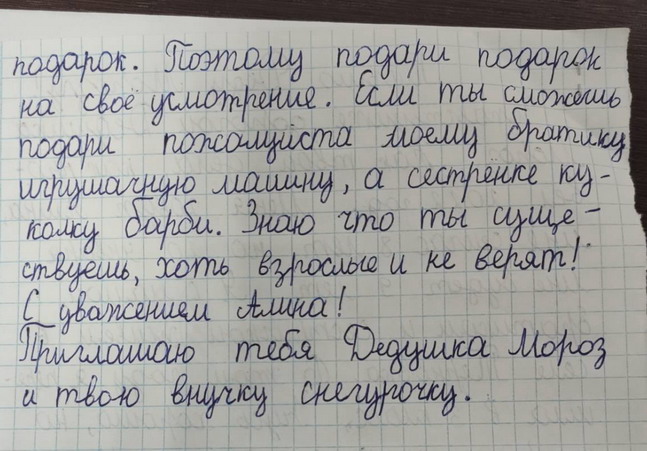 подарок. Поэтому подари подарок
на своё усмотрение. Если ты сможешь
подари пожалуйста моему братику
игрушачную машину, а сестрёнке ку-
колку барби. Знаю что ты суще-
ствуешь, хоть взрослые и не верят!
С уважением Алина!
Приглашаю тебя Дедушка Мороз
и твою внучку снегурочку.